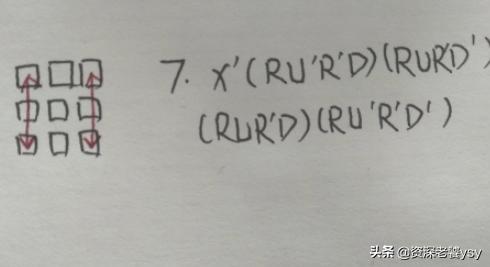 7. x'(RU'R'D)(RUR'D')
(RUR'D)(RU'R'D')
头条 @资深老饕ysy